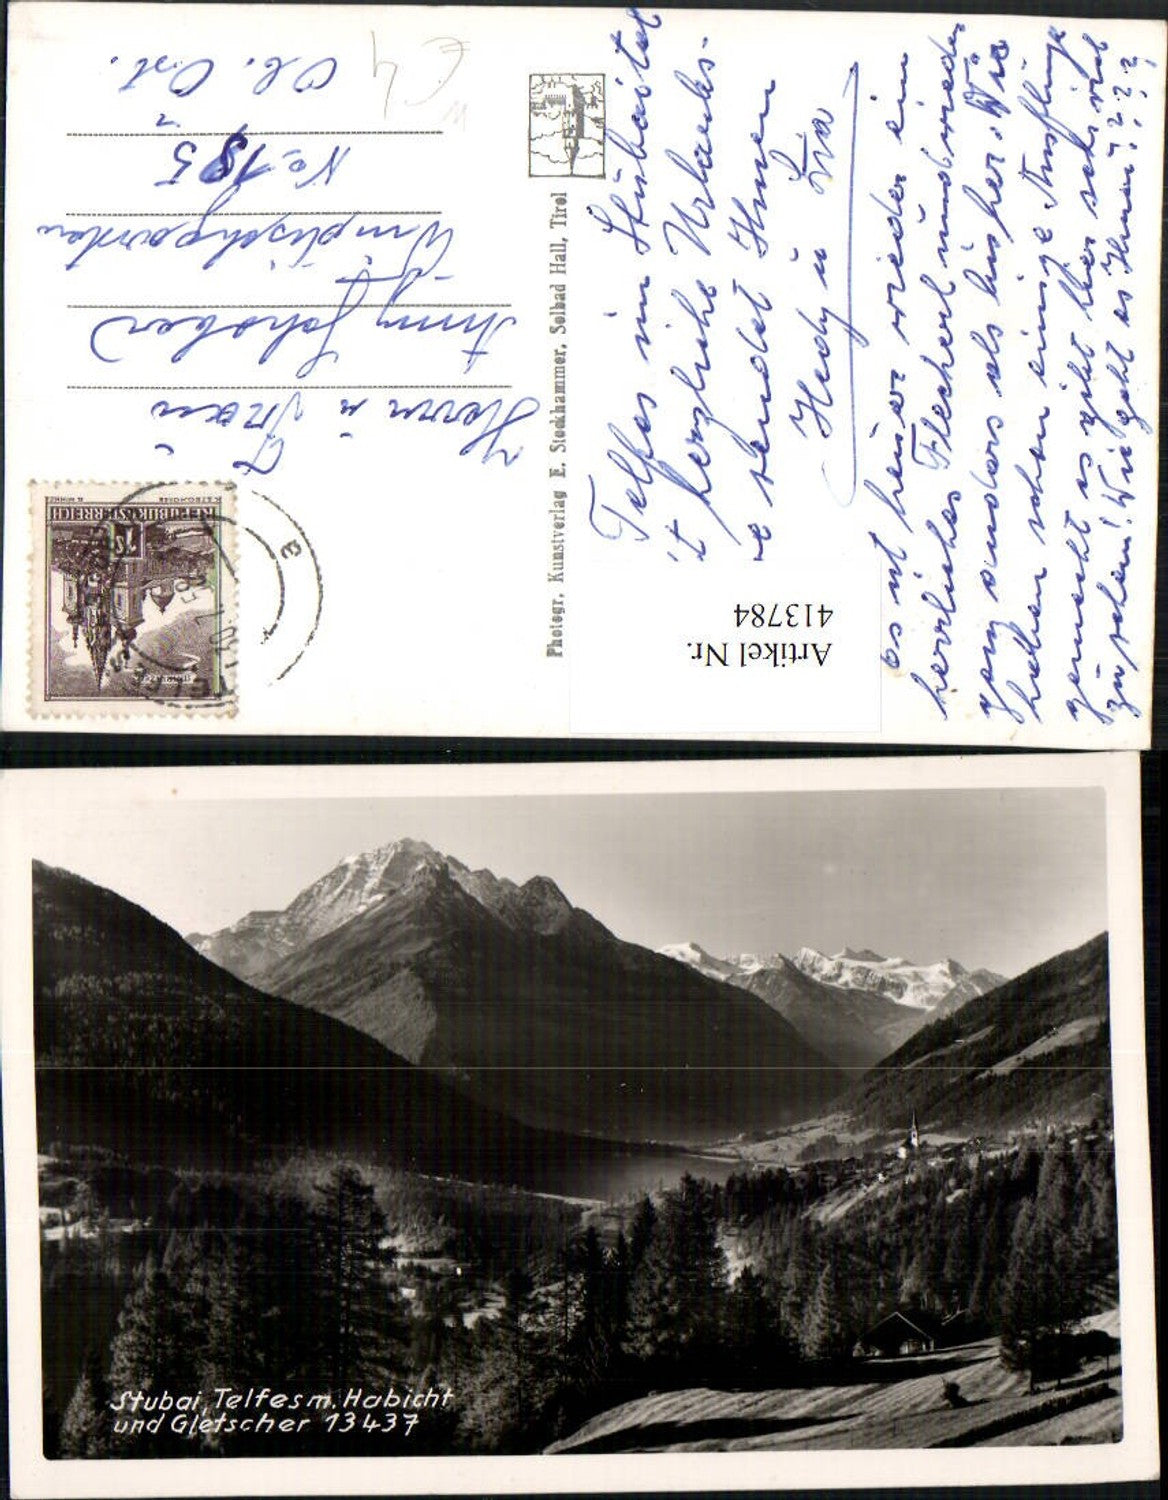 Telfes im Stubaital
herzliche Urlaubs-
sendet Ihnen
Hedy u Lia
es ist heuer wieder ein
herrliches Fleckerl und wieder
ganz anders als bisher. Wir
haben schon einige Ausflüge
gemacht es gibt hier sehr viel
zu sehen! Wie geht es Ihnen????
Photogr. Kunstverlag E. Stockhammer, Solbad Hall, Tirol
REPUBLIK ÖSTERREICH
1 S
Herrn u Frau
Anny
Windischgarsten
No 185
Ob. Öst.
Artikel Nr.
413784
Stubai, Telfes m. Habicht
und Gletscher 13437